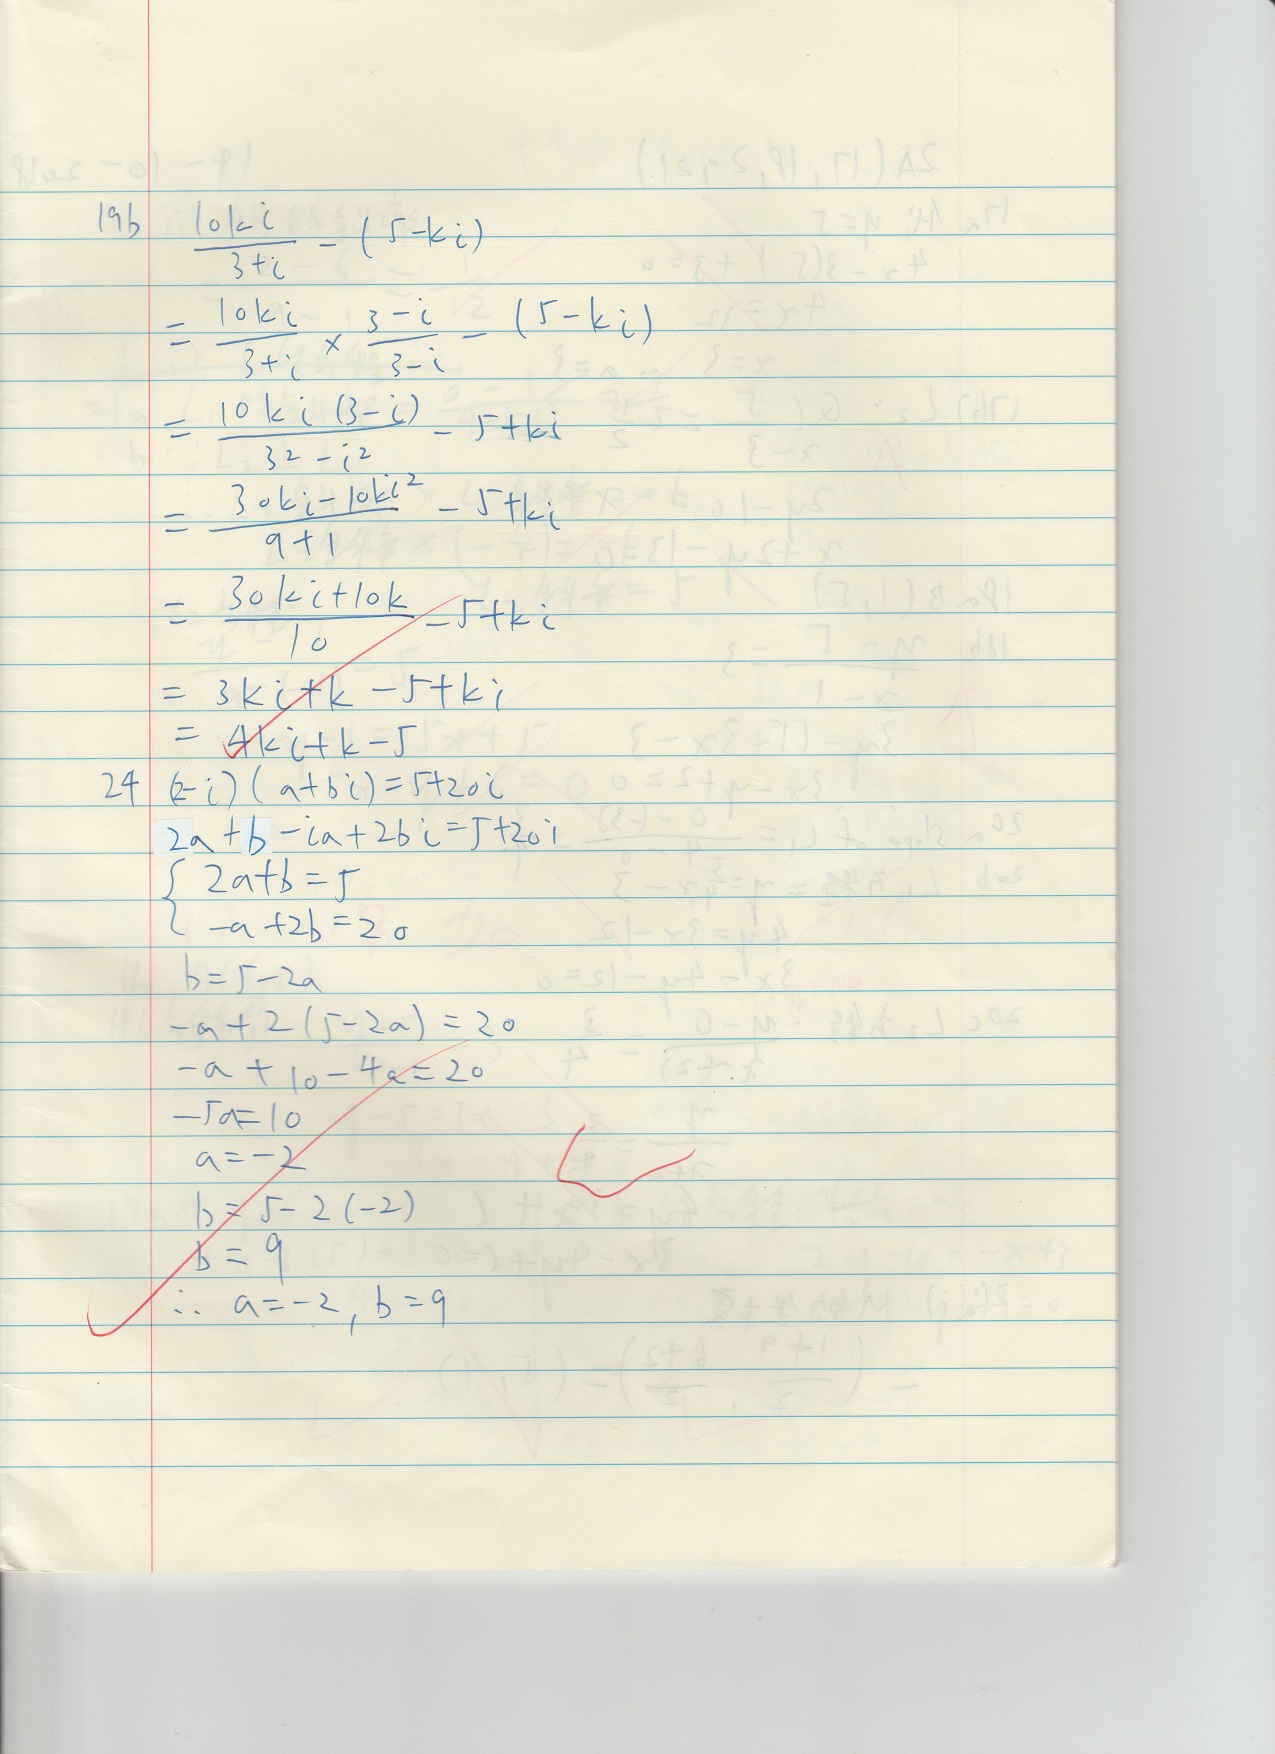 19b 10ki/3+i - (5-ki)
= 10ki/3+i × 3-i/3-i - (5-ki)
= 10ki(3-i)/3²-i² - 5+ki
= 30ki-10ki²/9+1 - 5+ki
= 30ki+10k/10 - 5+ki
= 3ki+k-5+ki
= 4ki+k-5
24 (2-i)(a+bi)=5+20i
2a+b-ia+2bi=5+20i
{ 2a+b=5
-a+2b=20
b=5-2a
-a+2(5-2a)=20
-a+10-4a=20
-5a=10
a=-2
b=5-2(-2)
b=9
∴ a=-2, b=9